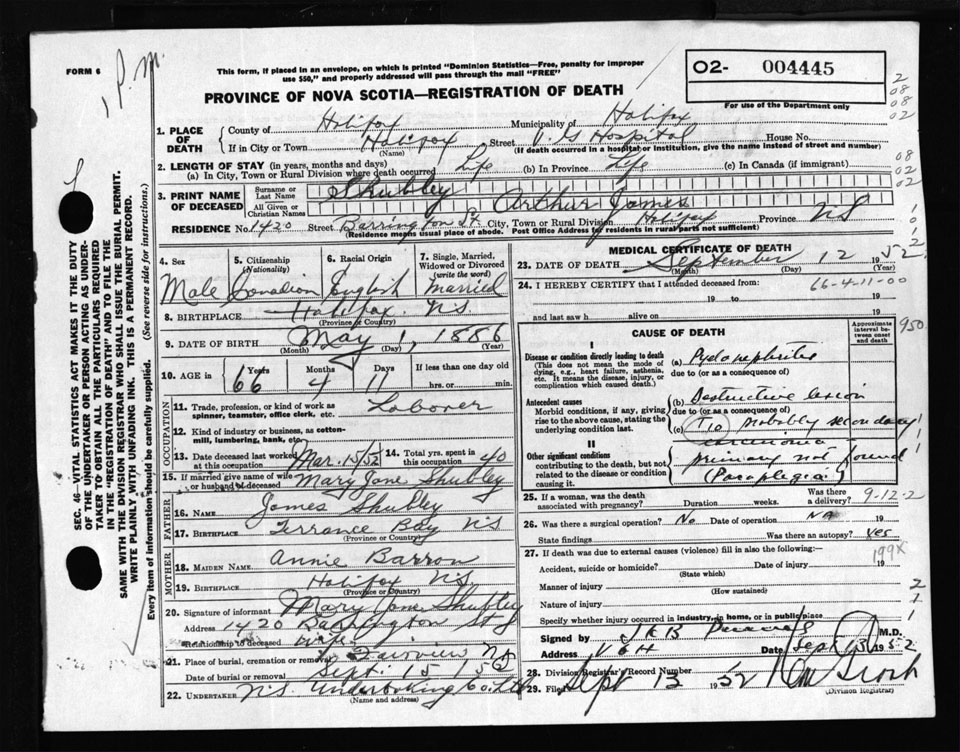 FORM 6
1 P.M.
This form, if placed in an envelope, on which is printed "Dominion Statistics—Free, penalty for improper
use $50," and properly addressed will pass through the mail "FREE"
PROVINCE OF NOVA SCOTIA—REGISTRATION OF DEATH
02- 004445
For use of the Department only
2
08
08
02
1. PLACE OF DEATH
County of Halifax Municipality of Halifax
If in City or Town Halifax (Name) Street V. G Hospital House No.
(If death occurred in a hospital or institution, give the name instead of street and number)
2. LENGTH OF STAY (in years, months and days)
(a) In City, Town or Rural Division where death occurred Life (b) In Province Life (c) In Canada (if immigrant)
08
02
02
3. PRINT NAME OF DECEASED
Surname or Last Name Shubley
All Given or Christian Names Arthur James
RESIDENCE No. 1420 Street Barrington St. City, Town or Rural Division Halifax Province NS
(Residence means usual place of abode. Post Office Address for residents in rural parts not sufficient)
SEC. 46—VITAL STATISTICS ACT MAKES IT THE DUTY
OF THE UNDERTAKER OR PERSON ACTING AS UNDER-
TAKER TO OBTAIN ALL THE PARTICULARS REQUIRED
IN THE "REGISTRATION OF DEATH" AND TO FILE THE
SAME WITH THE DIVISION REGISTRAR WHO SHALL ISSUE THE BURIAL PERMIT.
WRITE PLAINLY WITH UNFADING INK. THIS IS A PERMANENT RECORD.
Every item of information should be carefully supplied. (See reverse side for instructions.)
4. Sex Male
5. Citizenship (Nationality) Canadian
6. Racial Origin English
7. Single, Married, Widowed or Divorced (write the word) Married
8. BIRTHPLACE Halifax NS
(Province or Country)
9. DATE OF BIRTH May 1, 1886
(Month) (Day) (Year)
10. AGE in Years 66 Months 4 Days 11 If less than one day old hrs. or min.
OCCUPATION
11. Trade, profession, or kind of work as spinner, teamster, office clerk, etc. Laborer
12. Kind of industry or business, as cotton-mill, lumbering, bank, etc.
13. Date deceased last worked at this occupation Mar. 15/52
14. Total yrs. spent in this occupation 40
15. If married give name of wife or husband of deceased Mary Jane Shubley
FATHER
16. Name James Shubley
17. Birthplace Terrance Bay NS
(Province or Country)
MOTHER
18. MAIDEN NAME Annie Barron
19. BIRTHPLACE Halifax NS
(Province or Country)
20. Signature of informant Mary Jane Shubley
Address 1420 Barrington St
Relationship to deceased wife
21. Place of burial, cremation or removal Fairview NS
Date of burial or removal Sept. 15 1952
22. UNDERTAKER N.S. Undertaking Co. Ltd
(Name and address)
MEDICAL CERTIFICATE OF DEATH
23. DATE OF DEATH September 12 1952
(Month) (Day) (Year)
24. I HEREBY CERTIFY that I attended deceased from: 66-4-11-00
19 to 19
and last saw h alive on 19
CAUSE OF DEATH
Approximate interval between onset and death
950
I
Disease or condition directly leading to death
(This does not mean the mode of dying, e.g., heart failure, asthenia, etc. It means the disease, injury, or complication which caused death.)
(a) Pyelonephritis
due to (or as a consequence of)
Antecedent causes
Morbid conditions, if any, giving rise to the above cause, stating the underlying condition last.
(b) Destructive lesion
due to (or as a consequence of)
(c) T10 probably secondary
carcinoma
II
Other significant conditions
contributing to the death, but not related to the disease or condition causing it.
primary not found
(Paraplegia)
25. If a woman, was the death associated with pregnancy? Duration weeks. Was there a delivery? 9-12-2
26. Was there a surgical operation? No Date of operation NA 19
State findings Was there an autopsy? Yes
27. If death was due to external causes (violence) fill in also the following:—
199X
Accident, suicide or homicide? Date of injury 19
(State which)
Manner of injury
(How sustained)
Nature of injury
Specify whether injury occurred in industry, in home, or in public place
Signed by M.D.
Address VGH Date Sept 13 1952
28. Division Registrar's Record Number
29. Filed Sept 13 1952
(Division Registrar)